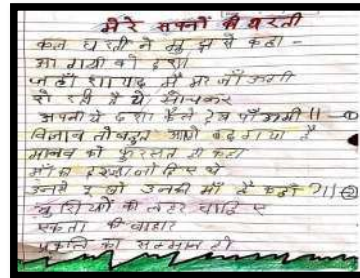 मेरे सपनों की धरती
कल धरती ने मुझसे कहा -
आ गयी को दशा
जहाँ शायद मैं मर जाँऊगी
रो रही है ये सोचकर
अपनी ये दशा कैसे देख पाँऊगी !! - ①
विज्ञान तो बहुत आगे बढ़ गया है
मानव को फुरसत ही कहा
माँ का
उनसे पूछो उनकी माँ है कहाँ ?!! ②
खुशियों की लहर चाहिए
एकता की बाहार
प्रकृति का सम्मान हो